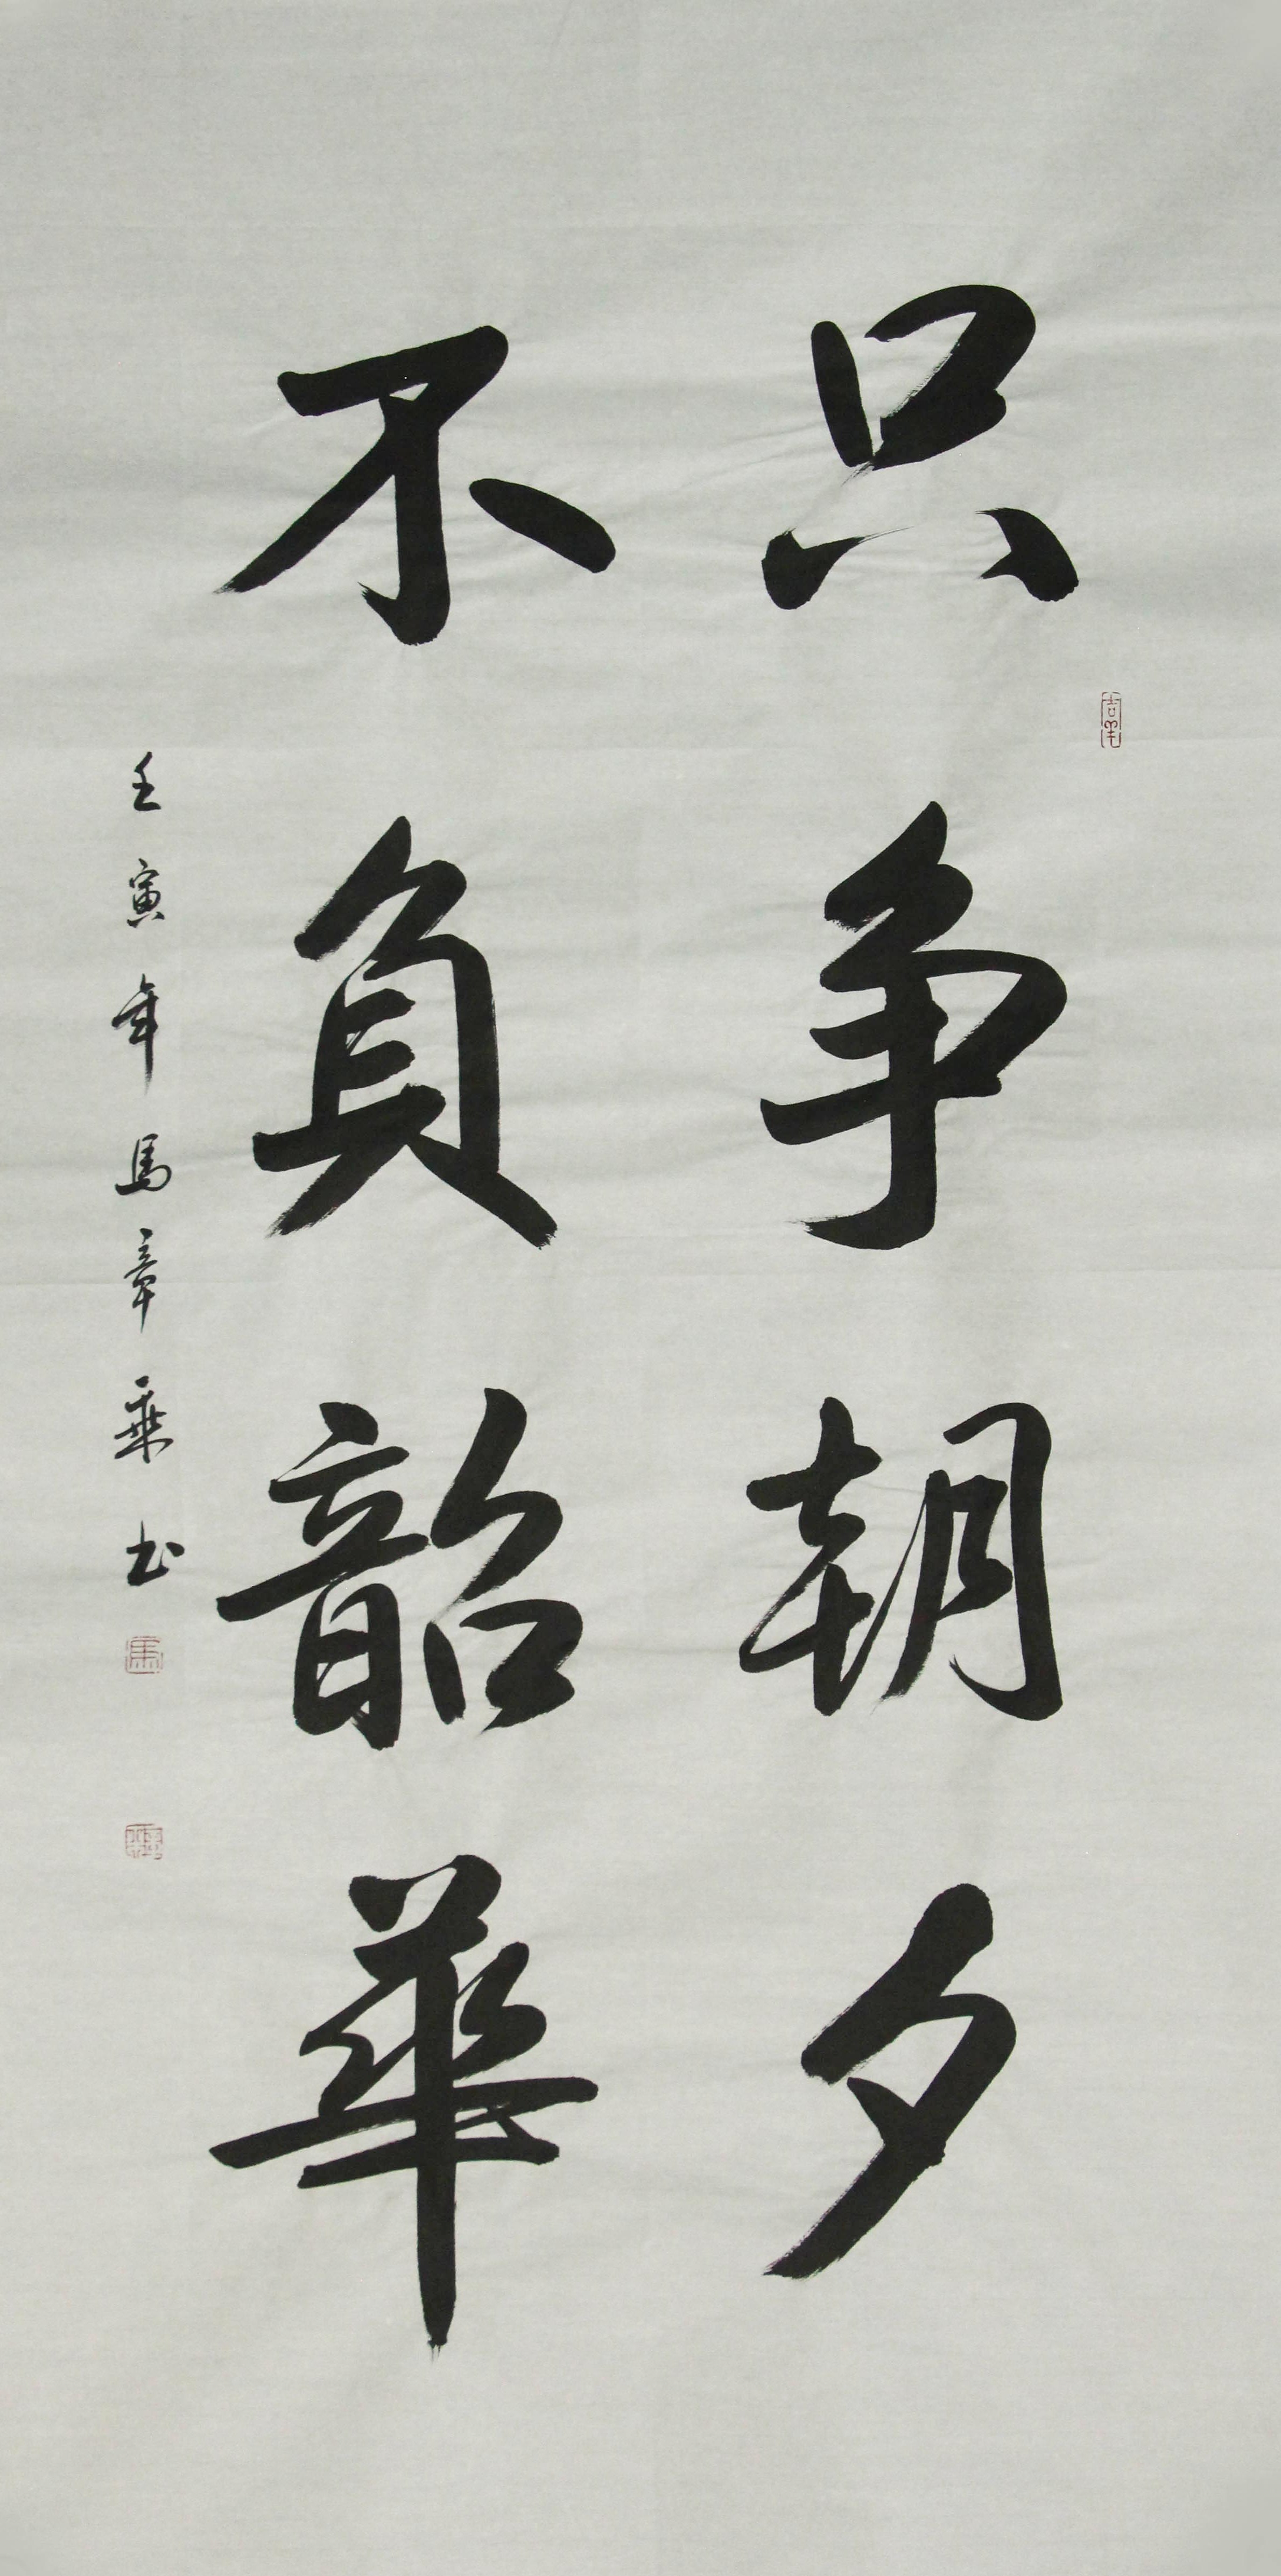 只争朝夕
不負韶華
壬寅年馬章乘书